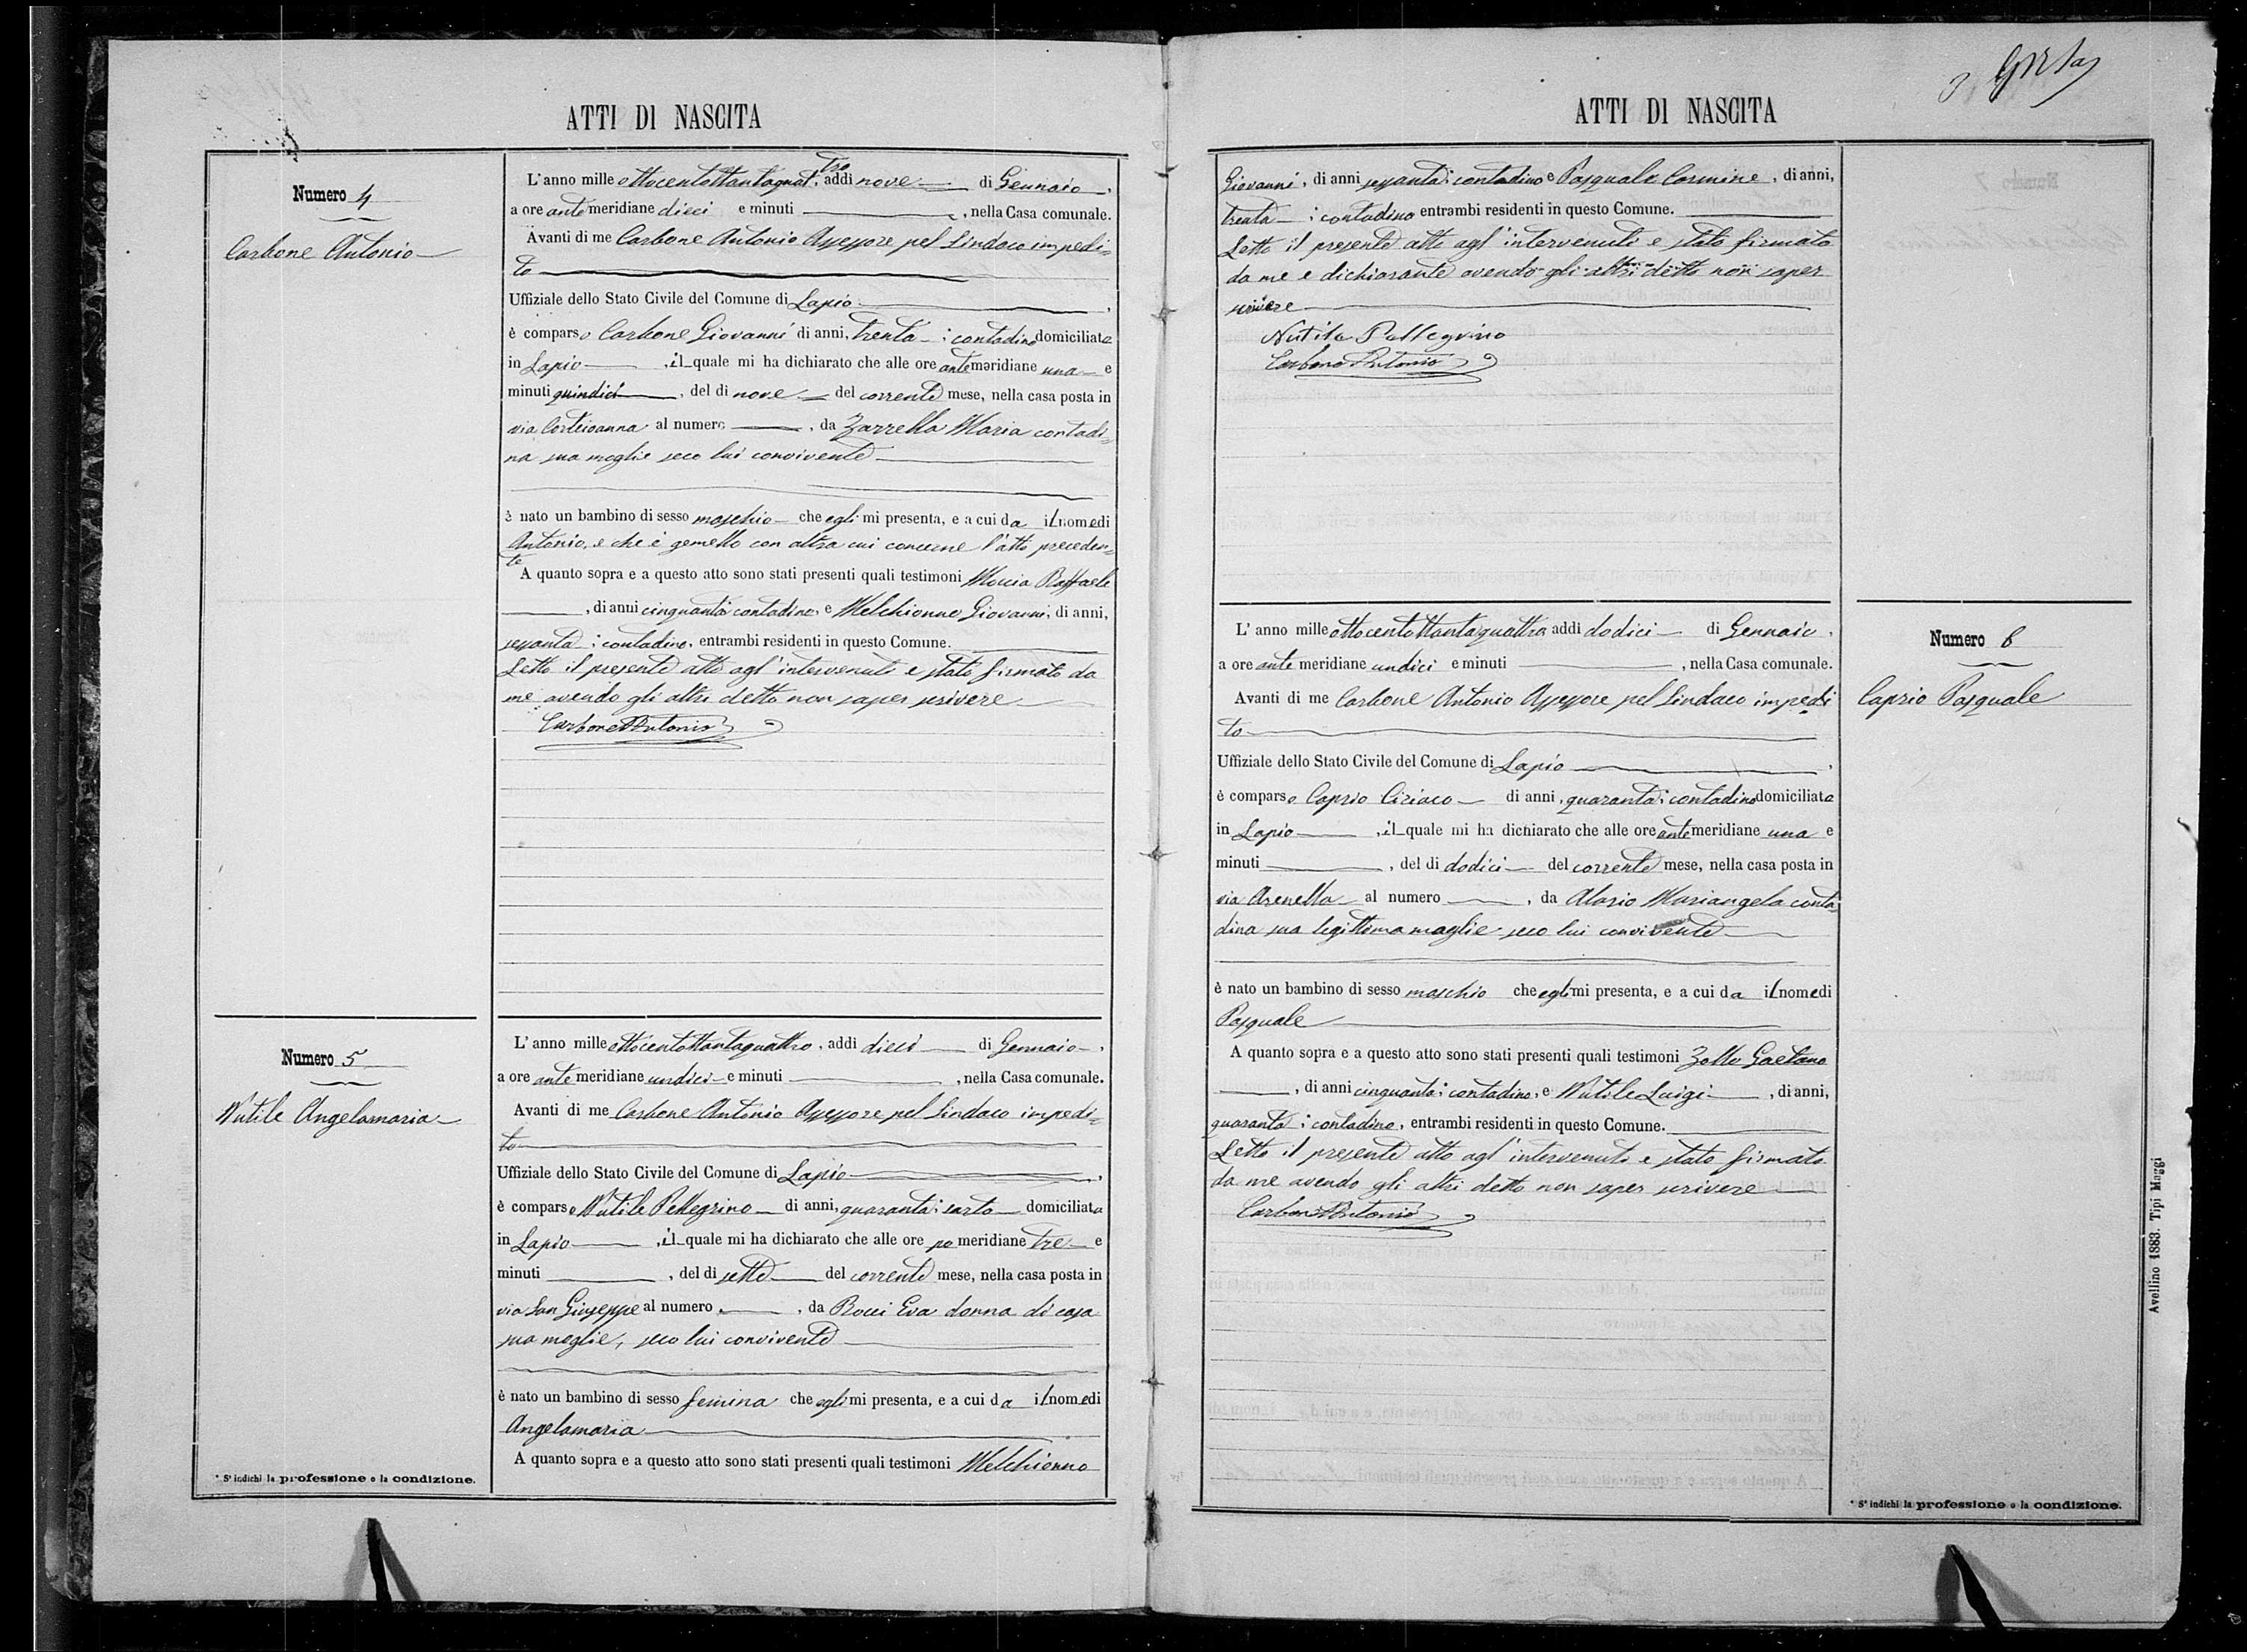 ATTI DI NASCITA
Numero 4
Carbone Antonio
L'anno mille ottocentottantaquat, tro addi nove di Gennaio,
a ore antemeridiane dieci e minuti , nella Casa comunale.
Avanti di me Carbone Antonio Assessore pel Sindaco impedi=
to
Uffiziale dello Stato Civile del Comune di Lapio
è comparso Carbone Giovanni di anni, trenta; contadino domiciliato
in Lapio, il quale mi ha dichiarato che alle ore antemeridiane una e
minuti quindici, del di nove del corrente mese, nella casa posta in
via Corteioanna al numero , da Zarrella Maria contadi=
na sua moglie seco lui convivente
è nato un bambino di sesso maschio che egli mi presenta, e a cui da il nome di
Antonio, e che è gemello con altra cui concerne l'atto preceden=
te
A quanto sopra e a questo atto sono stati presenti quali testimoni Moccia Raffaele
, di anni cinquanta contadino, e Melchionno Giovanni, di anni,
sessanta; contadino, entrambi residenti in questo Comune.
Letto il presente atto agl'intervenuti e stato firmato da
me avendo gli altri detto non saper scrivere
Carbone Antonio
Numero 5
Nutile Angelamaria
L'anno mille ottocentottantaquattro, addi dieci di Gennaio,
a ore antemeridiane undici e minuti , nella Casa comunale.
Avanti di me Carbone Antonio Assessore pel Sindaco impedi=
to
Uffiziale dello Stato Civile del Comune di Lapio
è comparso Nutile Pellegrino di anni, quaranta; sarto domiciliato
in Lapio, il quale mi ha dichiarato che alle ore pomeridiane tre e
minuti , del di sette del corrente mese, nella casa posta in
via San Giuseppe al numero , da Rocci Eva donna di casa
sua moglie, seco lui convivente
è nato un bambino di sesso femina che egli mi presenta, e a cui da il nome di
Angelamaria
A quanto sopra e a questo atto sono stati presenti quali testimoni Melchionno
* S'indichi la professione o la condizione.
ATTI DI NASCITA
3
Giovanni, di anni sessanta; contadino e Pasquale Carmine, di anni,
trenta; contadino entrambi residenti in questo Comune.
Letto il presente atto agl'intervenuti e stato firmato
da me e dichiarante avendo gli altri detto non saper
scrivere
Nutile Pellegrino
Carbone Antonio
Numero 6
Caprio Pasquale
L'anno mille ottocentottantaquattro, addi dodici di Gennaio,
a ore antemeridiane undici e minuti , nella Casa comunale.
Avanti di me Carbone Antonio Assessore pel Sindaco impedi
to
Uffiziale dello Stato Civile del Comune di Lapio
è comparso Caprio Ciriaco di anni, quaranta; contadino domiciliato
in Lapio, il quale mi ha dichiarato che alle ore antemeridiane una e
minuti , del di dodici del corrente mese, nella casa posta in
via Arenella al numero , da Alosio Mariangela conta=
dina sua legittima moglie seco lui convivente
è nato un bambino di sesso maschio che egli mi presenta, e a cui da il nome di
Pasquale
A quanto sopra e a questo atto sono stati presenti quali testimoni Zollo Gaetano
, di anni cinquanta; contadino, e Nutile Luigi, di anni,
quaranta; contadino, entrambi residenti in questo Comune.
Letto il presente atto agl'intervenuti e stato firmato
da me avendo gli altri detto non saper scrivere
Carbone Antonio
* S'indichi la professione o la condizione.
Avellino 1883. Tipi Maggi